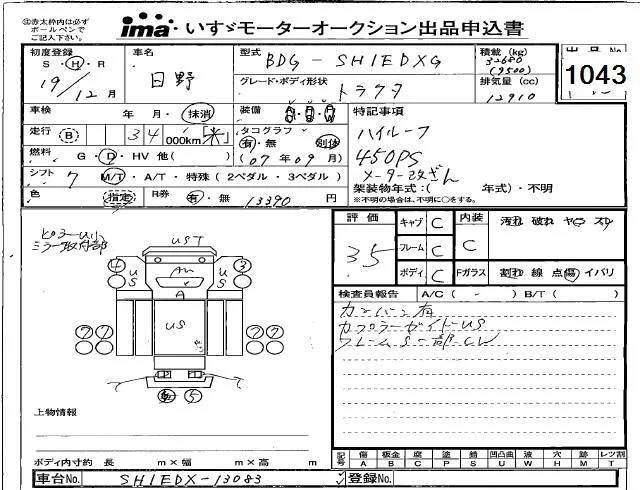 ㊟赤太枠内は必ず
ボールペンで
ご記入下さい。
ima いすゞモーターオークション出品申込書
初度登録 車名 型式 BDG - SH1EDXG 積載 (kg)
S・H・R 32680
19/12月 日野 (9500)
グレード・ボディ形状 トラクタ 排気量 (cc)
12910
1043
車検 年 月・抹消 装備 特記事項
走行 B 34 000km「米」 タコグラフ 有・無 別体 ハイルーフ
燃料 G・D・HV 他( ) (07年09月) 450PS
シフト 7 M/T・A/T・特殊 (2ペダル・3ペダル) メーター改ざん
架装物年式:( 年式)・不明
色 指定 R券 有・無 13390 円 ※不明の場合は、不明に○をする。
評価 35
キャブ C 内装 C 汚れ 破れ ヤケ スレ
フレーム C
ボディ C Fガラス 割れ 線 点 傷 イバリ
ピラーU小
ミラー取付部
UST
4 3
US US
A
US
7 7 7 7
5
検査員報告 A/C ( - ) B/T ( )
カンバン有
カプラーガイドUS
フレームS一部CW
上物情報
ボディ内寸約 長 m×幅 m×高 m
記号 傷 板金 腐 塗 錆 凹凸曲 波 穴 跡 レツ割
A B C P S U W H M T
車台No. SH1EDX-13083 登録No.